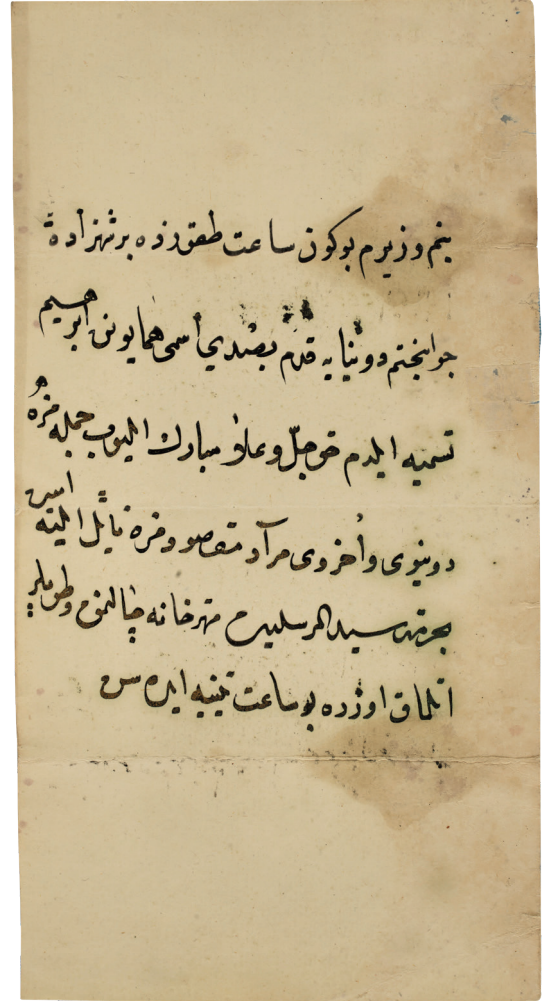 بنم وزيرم بوكون ساعت طقوزده بر شهزادهٔ
جوانبختم دونيايه قدم بصدي اسمى همايونن ابرهيم
تسميه ايلدم حق جلّ وعلا مبارك ايليوب جمله مزه
دونيوى واخروى مرآد مقصودمزه نائل ايليه امين
بحرمة سيد المرسلين مهترخانه چالنمق وطوپلر
اتلماق اوزره بو ساعت تنبيه ايده سن